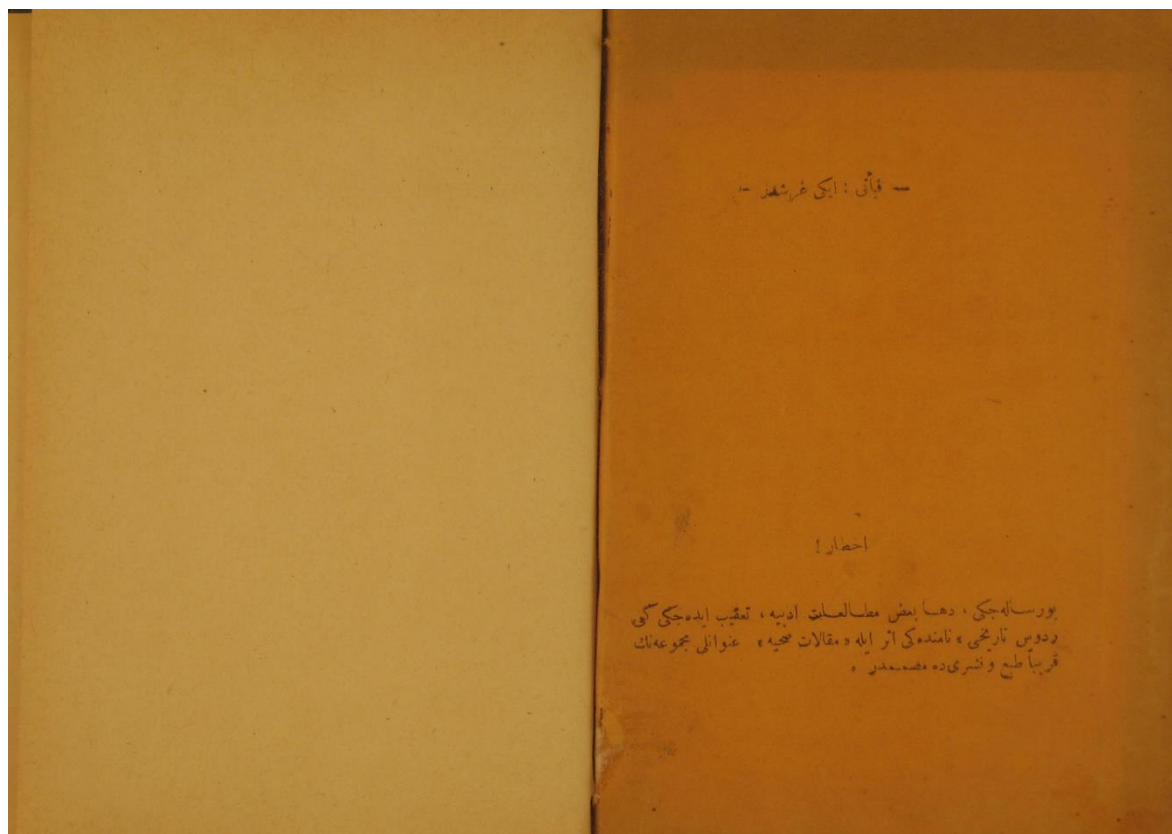 — فیأتی : ایکی غرشدر —
اخطار !
بورساله‌جکی ، دهـا بعض مطـالعـات ادبیه ، تعقیب ایده‌جکی کبی
ردوس تاریخی » نامنده‌کی اثر ایله « مقالات صحیه » عنوانلی مجموعه‌نك
قریباً طبع و نشری‌ده مصممدر .